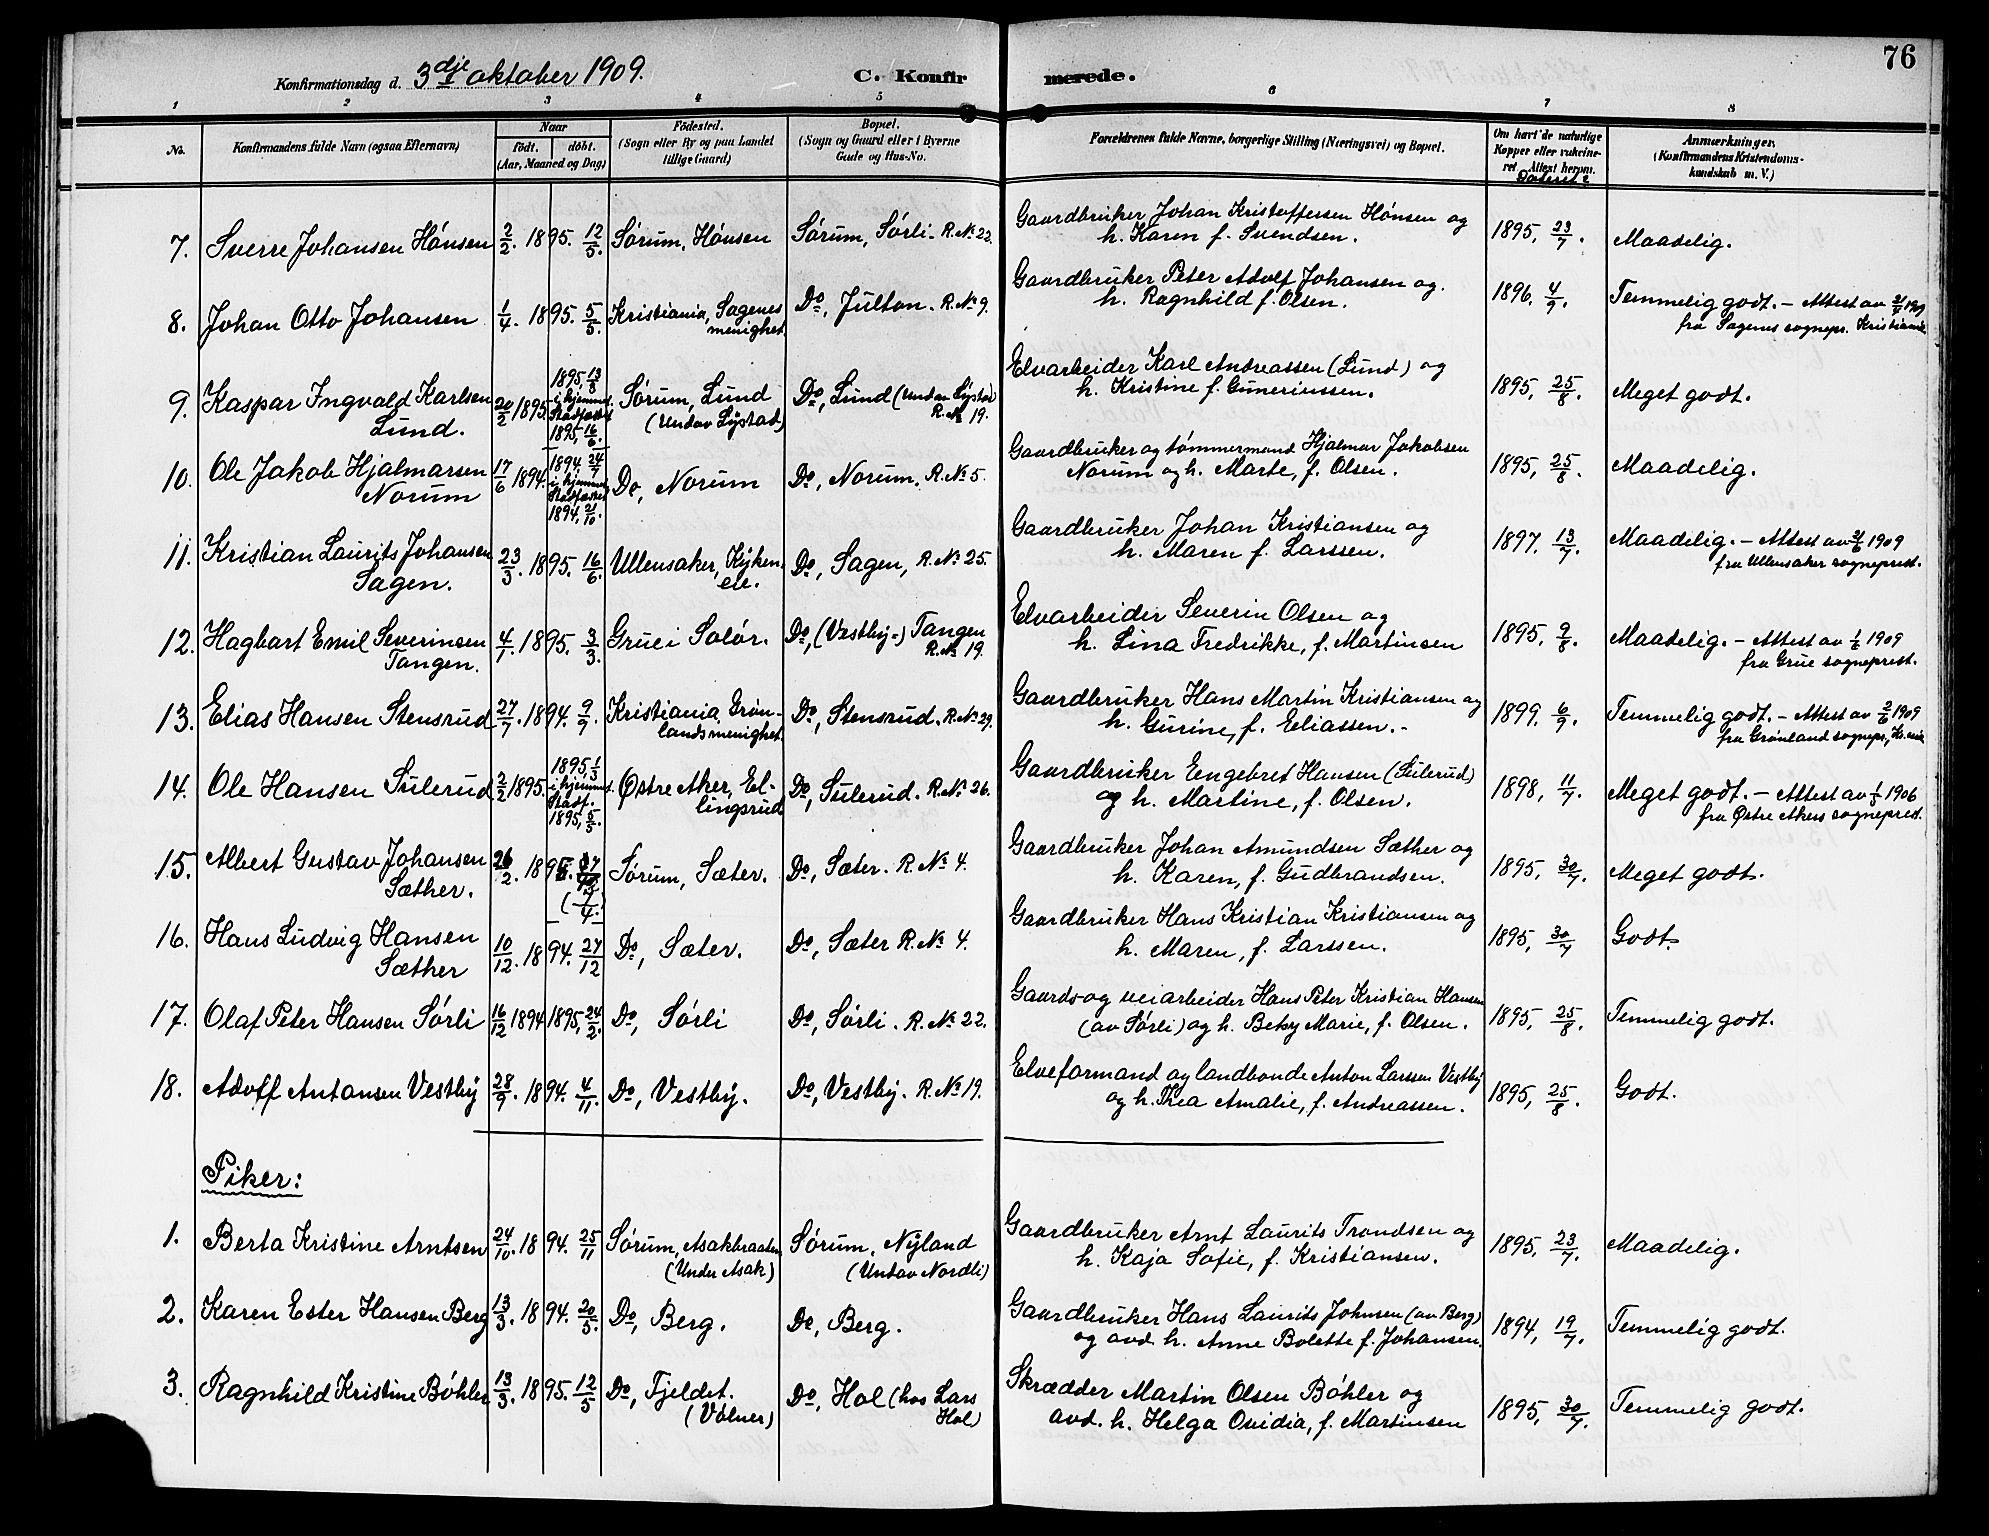 76
Konfirmationsdag d. 3dje oktober 1909.
C. Konfirmerede.
1 2 3 4 5 6 7 8
No.
Konfirmandens fulde Navn (ogsaa Efternavn)
Naar
født. døbt.
(Aar, Maaned og Dag)
Fødested.
(Sogn eller By og paa Landet
tillige Gaard)
Bopæl.
(Sogn og Gaard eller i Byerne
Gade og Hus-No.
Forældrenes fulde Navne, borgerlige Stilling (Næringsvei) og Bopæl.
Om havt de naturlige
Kopper eller vakcine-
ret. Attest herom.
Dateret:
Anmærkninger.
(Konfirmandens Kristendoms-
kundskab m. V.)
7. Sverre Johansen Hønsen 2/2. 1895. 12/5. Sørum, Hønsen Sørum, Sørli. R. No 22. Gaardbruker Johan Kristoffersen Hønsen og
h. Karen f. Svendsen. 1895, 23/7. Maadelig.
8. Johan Otto Johansen 1/4. 1895. 5/5. Kristiania, Sagenes
menighet. Do, Julton. R. No 9. Gaardbruker Peter Adolf Johansen og.
h. Ragnhild f. Olsen. 1896. 4/9. Temmelig godt. – Attest av 2/7 1909
fra Sagenes sognepr. Kristiania.
9. Kaspar Ingvald Karlsen
Lund. 20/2 1895. 1895, 13/3
i hjemmet.
Stadfæstet
1895, 16/6. Sørum, Lund
(Undav Lystad) Do, Lund (undav Lystad)
R. No 19. Elvarbeider Karl Andreassen (Lund) og
h. Kristine f. Guneriussen. 1895, 25/8. Meget godt.
10. Ole Jakob Hjalmarsen
Norum 17/6 1894. 1894, 24/7
i hjemmet
Stadfæstet
1894, 21/10. Do, Norum Do, Norum. R. No 5. Gaardbruker og tømmermand Hjalmar Jakobsen
Norum og h. Marte, f. Olsen. 1895, 25/8. Maadelig.
11. Kristian Laurits Johansen
Sagen. 23/3. 1895. 16/6. Ullensaker, Kyken
eie. Do, Sagen, R. No 25. Gaardbruker Johan Kristiansen og
h. Maren f. Larssen. 1897. 13/7. Maadelig. – Attest av 2/6 1909
fra Ullensaker sogneprest.
12. Hagbart Emil Severinsen
Tangen. 4/1. 1895. 3/3. Grue i Solør. Do, (Vestby-) Tangen
R. No 19. Elvarbeider Severin Olsen og
h. Lina Fredrikke, f. Martinsen 1895, 9/8. Maadelig. – Attest av 1/6 1909
fra Grue sogneprest.
13. Elias Hansen Stensrud 27/7. 1894. 9/9. Kristiania, Grøn-
landsmenighet. Do, Stensrud. R. No 29. Gaardbruker Hans Martin Kristiansen og
h. Gurine, f. Eeliassen. – 1899. 6/9. Temmelig godt. – Attest av 2/6 1909
fra Grønland sognepr., Kr.ania
14. Ole Hansen Sulerud 2/2 1895. 1895, 1/3
i hjemmet.
Stadf.
1895, 5/5. Østre Aker, El-
lingsrud Do, Sulerud. R. No 26. Gaardbruker Eengebret Hansen (Sulerud)
og h. Martine, f. Olsen. 1898, 11/7. Meget godt. – Attest av 1/5 1906
fra Østre Akers sogneprest.
15. Albert Gustav Johansen
Sæther. 26/2. 1895.
(7/4.) Sørum, Sæter. Do, Sæter. R. No 4. Gaardbruker Johan Amundsen Sæther og
h. Karen, f. Gudbrandsen. 1895, 30/7. Meget godt.
16. Hans Ludvig Hansen
Sæther 10/12. 1894. 27/12 Do, Sæter. Do, Sæter R. No 4. Gaardbruker Hans Kristian Kristiansen og
h. Maren, f. Larssen. 1895, 30/7 Godt.
17. Olaf Peter Hansen Sørli 16/12 1894 1895, 24/2. Do, Sørli Do, Sørli. R. No 22. Gaards- og veiarbeider Hans Peter Kristian Hansen
(av Sørli) og h. Betsy Marie, f. Olsen. 1895, 25/8. Temmelig godt.
18. Adolf Antonsen Vestby 28/9. 1894. 4/11. Do, Vestby. Do, Vestby. R. No 19. Elveformand og landbonde Anton Larssen Vestby
og h. Thea Amalie, f. Andreassen. 1895, 25/8. Godt.
Piker:
1. Berta Kristine Arntsen 24/10. 1894. 25/11 Sørum, Asakbraaten
(Under Asak) Sørum, Nyland
(Undav Nordli) Gaardbruker Arnt Laurits Trondsen og
h. Kaja Sofie, f. Kristiansen. 1895, 23/7. Maadelig.
2. Karen Ester Hansen Berg 13/3. 1894. 20/5. Do, Berg. Do, Berg. Gaardbruker Hans Laurits Johnsen (av Berg)
og avd. h. Anne Bolette f. Johansen. 1894, 19/7. Temmelig godt.
3. Ragnhild Kristine Bøhler 13/3. 1895. 12/5 Do, Fjeldet.
(Vølner) Do, Hol (hos Lars
Hol) Skrædder Martin Olsen Bøhler og
avd. h. Helga Ovidia, f. Martinsen 1895, 30/7. Temmelig godt.